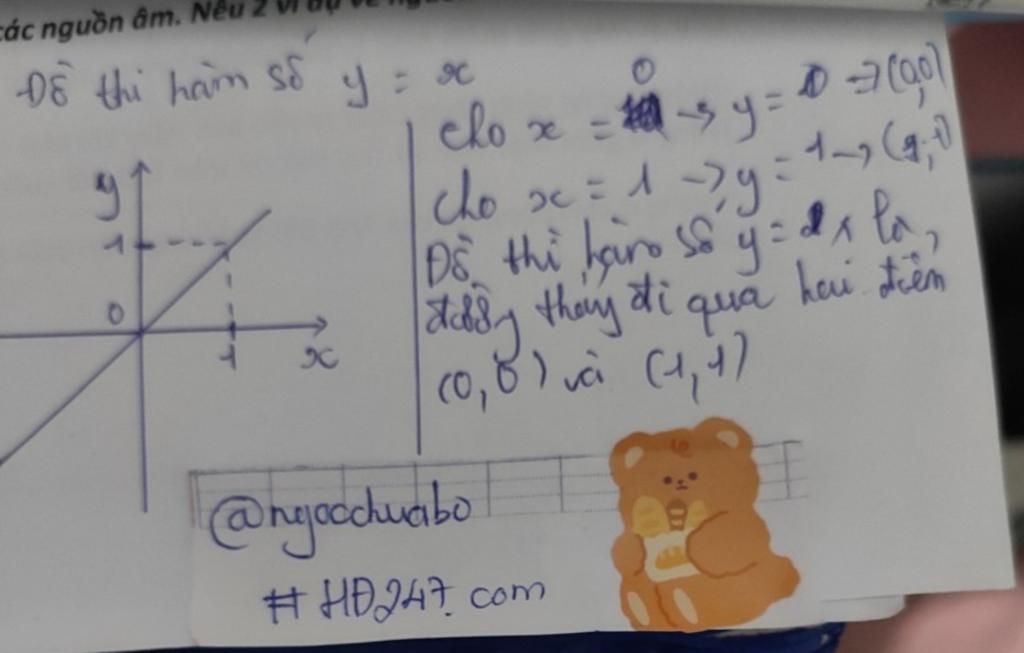 các nguồn âm. Nêu 2 ví dụ về
Đồ thi hàm số y = x
y
1
0
1
x
0
cho x = → y = 0 → (0,0)
cho x = 1 → y = 1 → (1,1)
Đồ thì hàm số y = x là
đường thẳng đi qua hai điểm
(0,0) và (1,1)
@ngocchuabo
# HĐ247.com